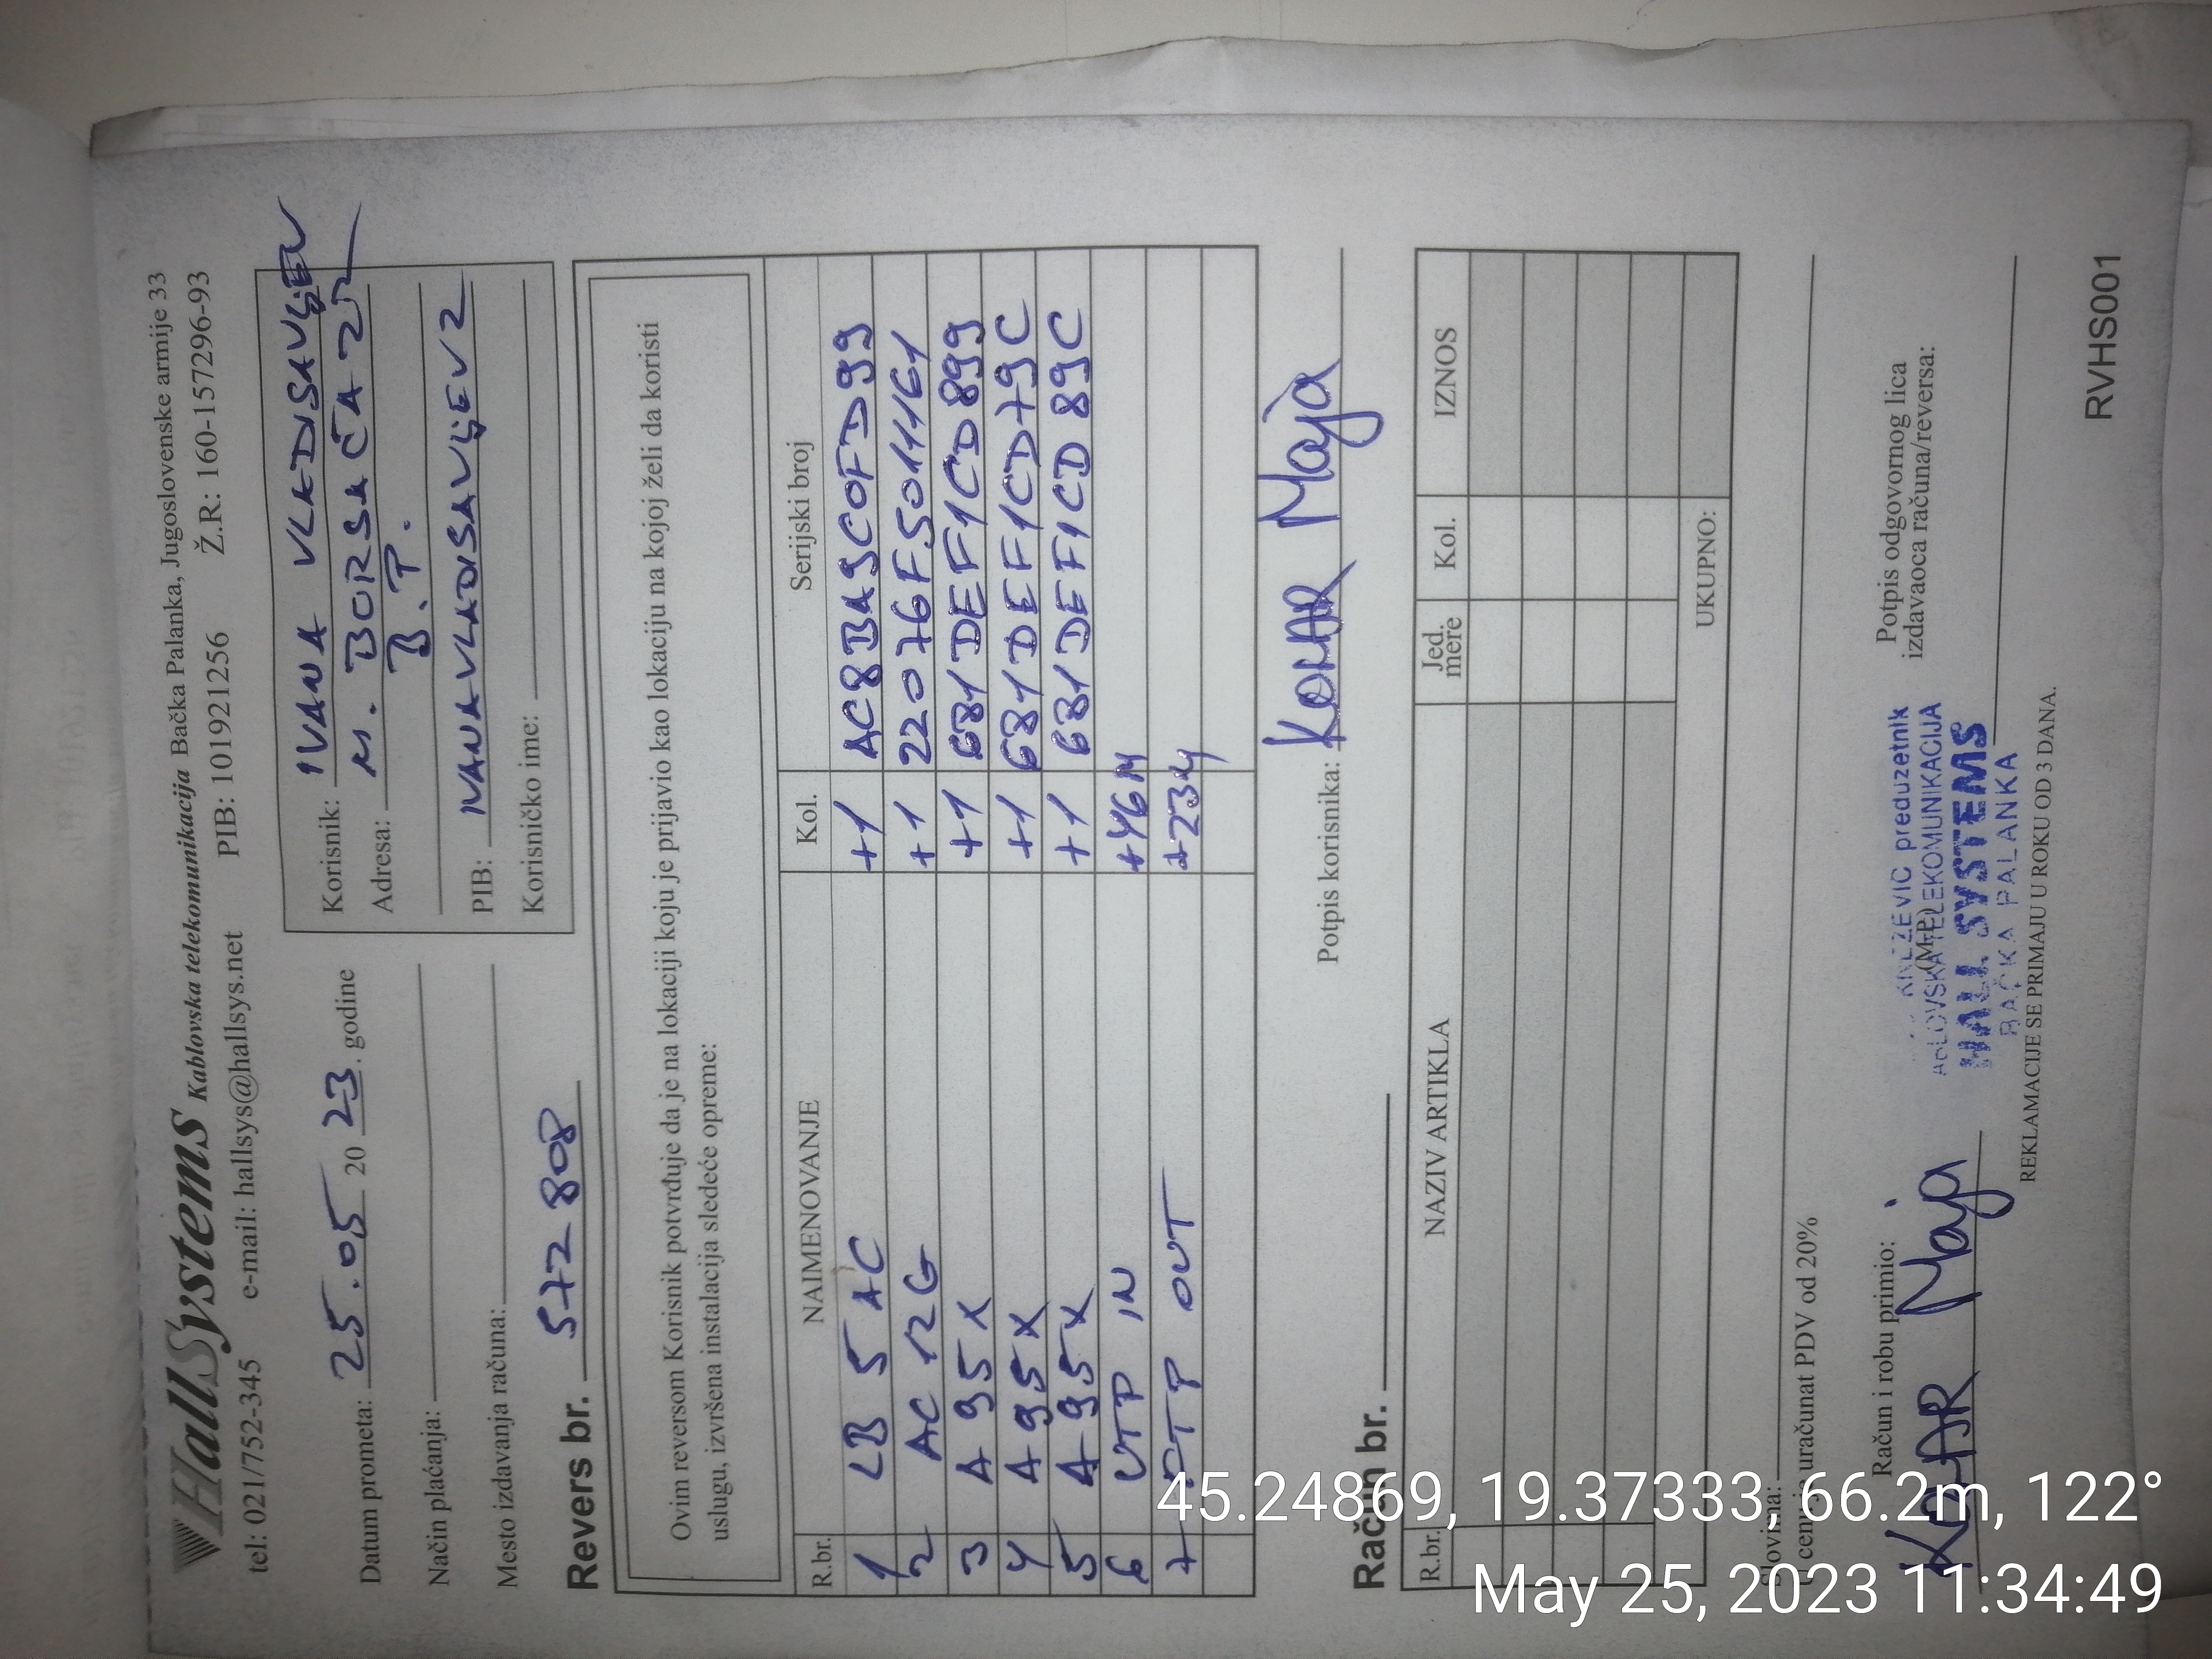 HallSystems Kablovska telekomunikacija Bačka Palanka, Jugoslovenske armije 33
tel: 021/752-345 e-mail: hallsys@hallsys.net PIB: 101921256 Ž.R: 160-157296-93
Datum prometa: 25.05 2023. godine
Način plaćanja:
Mesto izdavanja računa:
Korisnik: IVANA VLADISAVLJEV
Adresa: M. BORSAČA 2
B.P.
PIB: IVANAVLADISAVLJEV2
Korisničko ime:
Revers br. 572808
Ovim reversom Korisnik potvrđuje da je na lokaciji koju je prijavio kao lokaciju na kojoj želi da koristi
uslugu, izvršena instalacija sledeće opreme:
R.br. NAIMENOVANJE Kol. Serijski broj
1 LB 5 AC +1 AC8BA9C0FD99
2 AC 12G +1 22076F5011161
3 A95X +1 681DEFF1CD899
4 A95X +1 681DEF1CD79C
5 A95X +1 681DEF1CD89C
6 UTP IN +46M
7 FTP OUT +23M
Potpis korisnika: KOLAR Maja
Račun br.
R.br. NAZIV ARTIKLA Jed. mere Kol. IZNOS
UKUPNO:
Slovima:
U cenu je uračunat PDV od 20%
Račun i robu primio:
KOLAR Maja
(M.P.)
KNEŽEVIĆ preduzetnik
KABLOVSKA TELEKOMUNIKACIJA
HALL SYSTEMS
BAČKA PALANKA
Potpis odgovornog lica
izdavaoca računa/reversa:
REKLAMACIJE SE PRIMAJU U ROKU OD 3 DANA.
RVHS001
45.24869, 19.37333, 66.2m, 122°
May 25, 2023 11:34:49